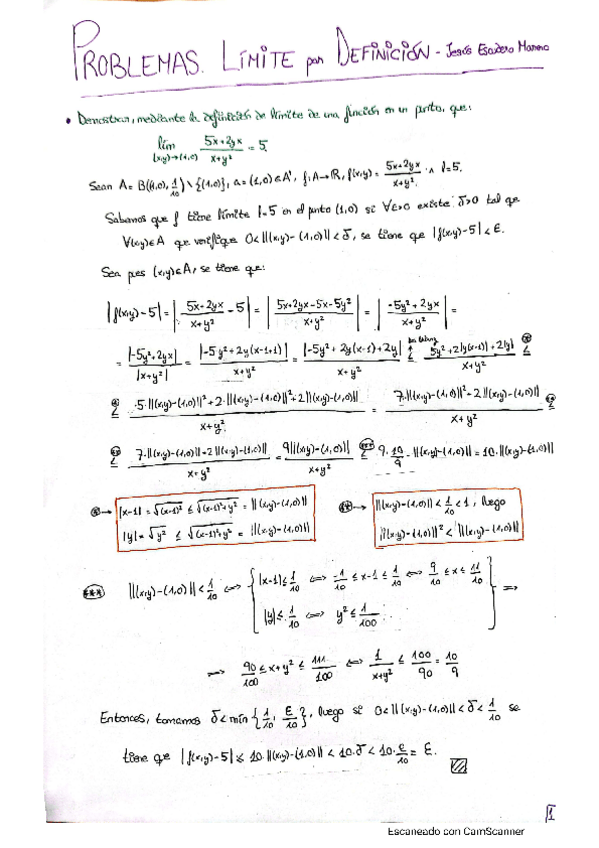 PROBLEMAS. LÍMITE por DEFINICIÓN - Jesús Escudero Moreno
• Demostrar, mediante la definición de límite de una función en un punto, que:
lím (x,y)→(1,0) (5x+2yx)/(x+y²) = 5.
Sean A = B((1,0), 1/10) \ {(1,0)}, a = (1,0) ∈ A', f: A→ℝ, f(x,y) = (5x+2yx)/(x+y²) ∧ l=5.
Sabemos que f tiene límite l=5 en el punto (1,0) si ∀ε>0 existe δ>0 tal que
∀(x,y)∈A que verifique 0<||(x,y)-(1,0)||<δ, se tiene que |f(x,y)-5|<ε.
Sea pues (x,y)∈A, se tiene que:
|f(x,y)-5| = |(5x+2yx)/(x+y²) - 5| = |(5x+2yx-5x-5y²)/(x+y²)| = |(-5y²+2yx)/(x+y²)| =
= |-5y²+2yx|/|x+y²| = |-5y²+2y(x-1+1)|/(x+y²) = |-5y²+2y(x-1)+2y|/(x+y²) ≤ (5y²+2|y(x-1)|+2|y|)/(x+y²) ≤ (*)
(*) ≤ (5·||(x,y)-(1,0)||²+2·||(x,y)-(1,0)||²+2||(x,y)-(1,0)||)/(x+y²) = (7·||(x,y)-(1,0)||²+2·||(x,y)-(1,0)||)/(x+y²) ≤ (**)
(**) ≤ (7·||(x,y)-(1,0)||+2||(x,y)-(1,0)||)/(x+y²) = 9||(x,y)-(1,0)||/(x+y²) ≤ (***) 9·10/9·||(x,y)-(1,0)|| = 10·||(x,y)-(1,0)||
(*)→ |x-1| = √(x-1)² ≤ √((x-1)²+y²) = ||(x,y)-(1,0)||
|y| = √y² ≤ √((x-1)²+y²) = ||(x,y)-(1,0)||
(**)→ ||(x,y)-(1,0)|| < 1/10 < 1, luego
||(x,y)-(1,0)||² < ||(x,y)-(1,0)||
(***) ||(x,y)-(1,0)|| < 1/10 ⟺ { |x-1| ≤ 1/10 ⟺ -1/10 ≤ x-1 ≤ 1/10 ⟺ 9/10 ≤ x ≤ 11/10 } ⟹
|y| ≤ 1/10 ⟺ y² ≤ 1/100
⟹ 90/100 ≤ x+y² ≤ 111/100 ⟺ 1/(x+y²) ≤ 100/90 = 10/9
Entonces, tomamos δ<min{1/10, ε/10}, luego si 0<||(x,y)-(1,0)||<δ<1/10 se
tiene que |f(x,y)-5| ≤ 10·||(x,y)-(1,0)|| < 10·δ < 10·ε/10 = ε.
1
Escaneado con CamScanner